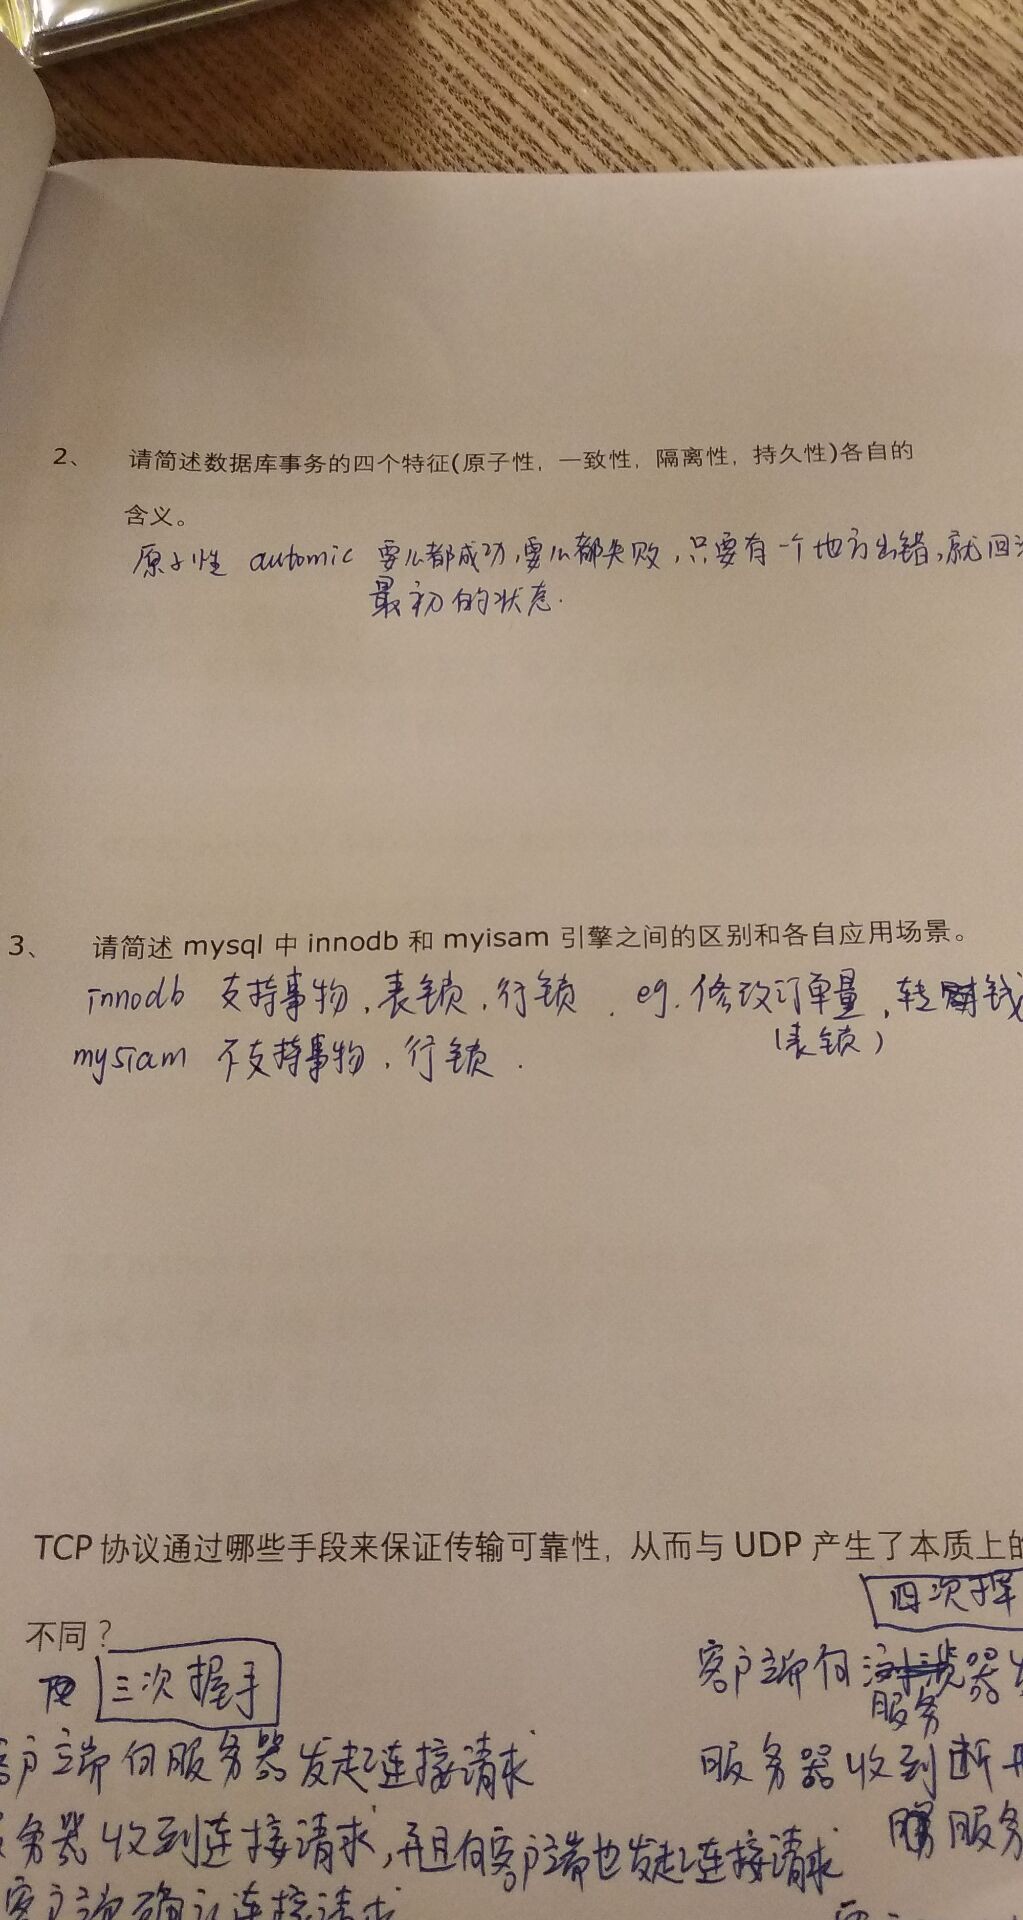 2、 请简述数据库事务的四个特征(原子性，一致性，隔离性，持久性)各自的
含义。
原子性 automic 要么都成功,要么都失败,只要有一个地方出错,就回
最初的状态.
3、 请简述 mysql 中 innodb 和 myisam 引擎之间的区别和各自应用场景。
innodb 支持事物,表锁,行锁. eg. 修改订单量,转钱
(表锁)
mysiam 不支持事物,行锁.
TCP 协议通过哪些手段来保证传输可靠性，从而与 UDP 产生了本质上的
四次挥
不同？
三次握手
客户端向服务器
户端向服务器发起连接请求
服务器收到断开
务器收到连接请求,并且向客户端也发起连接请求
服务
客户端确认连接请求